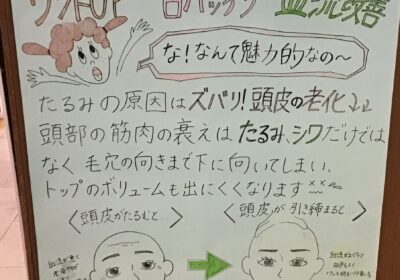 リフトUP 白バツグン 血流改善
な!なんて魅力的なの〜
たるみの原因はズバリ!頭皮の老化↓↓
頭部の筋肉の衰えはたるみ、シワだけでは
なく毛穴の向きまで下に向いてしまい、
トップのボリュームも出にくくなります
〈頭皮がたるむと…〉 〈頭皮が引き締まると〉
血流が悪く
血流がよくなり